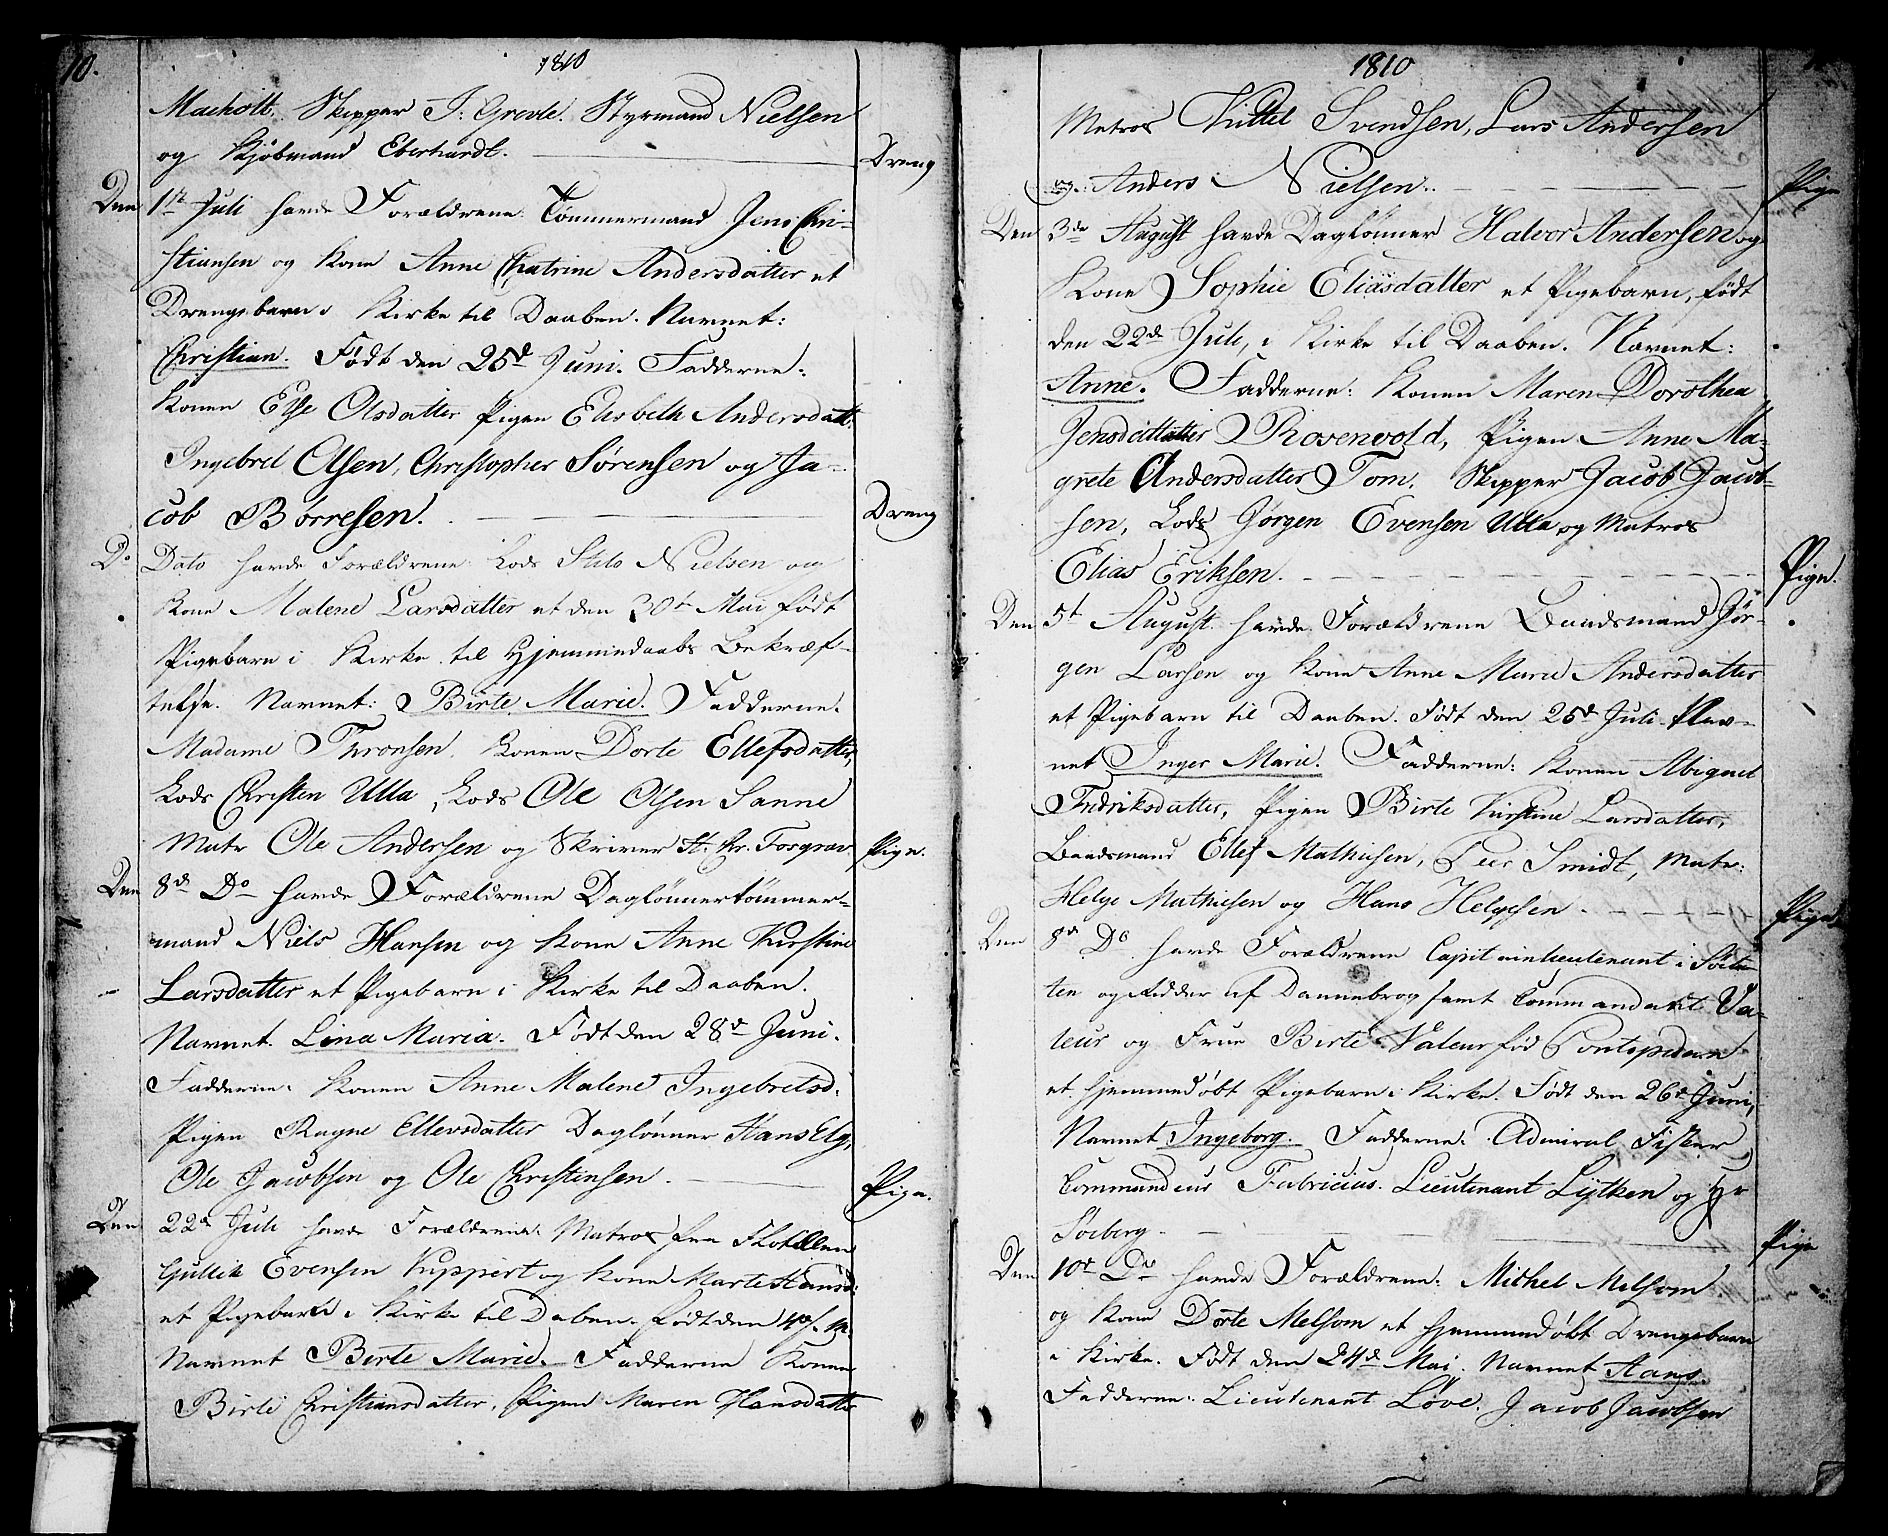 10.
1810
Macholt. Skipper J: Grevle. Styrmand Nielsen
og Kjöbmand Eberhardt. Dreng
Den 1ste Juli havde Forældrene: Tömmermand Jens Chri-
stiansen og Kone Anne Chatrine Andersdatter et
Drengebarn i Kirke til Daaben. Navnet:
Christian. Födt den 25d Juni. Fadderne:
Konen Else Olsdatter Pigen Elisbeth Andersdatt:
Ingebret Olsen, Christopher Sörensen og Ja-
cob Börresen. Dreng
Do Dato havde Forældrene Lods Nielsen og
Kone Malene Larsdatter et den 30t Mai födt
Pigebarn i Kirke til Hjemmedaabs Bekræf-
telse. Navnet: Birte Marie. Fadderne.
Madame Thronsen. Konen Dorte Ellefsdatter,
Lods Christen Ulla, Lods Ole Olsen Sanne
Matr Ole Andersen og Skriver H. Chr. Forgrav. Pige.
Den 8de Do havde Forældrene Daglönnertömmer-
mand Niels Hansen og Kone Anne Kirstine
Larsdatter et Pigebarn i Kirke til Daaben.
Navnet. Lina Maria. Födt den 28d Juni.
Fadderne. Konen Anne Malene Ingebretsd.
Pigen Ragne Ellevsdatter Daglönner Hans Elg,
Ole Jacobsen og Ole Christensen. Pige.
Den 22de Juli havde Forældrene: Matros fra Flotillen
Gullik Evensen Kuppert og Kone Marte Hansd:
et Pigebarn i Kirke til Daben. Födt den
Navnet Birte Marie. Fadderne Konen
Birte Christiansdatter, Pigen Maren Hansdatter
1810
Matros Kittel Svendsen, Lars Andersen
og Anders Nielsen. Pige
Den 3de August havde Daglönner Halvor Andersen og
Kone Sophie Eliasdatter et Pigebarn, födt
den 22de Juli, i Kirke til Daaben. Navnet:
Anne. Fadderne: Konen Maren Dorothea
Jensdatter Rosenvold, Pigen Anne Ma-
grete Andersdatter Tom. Skipper Jacob Jacob-
sen, Lods Jörgen Evensen Ulla og Matros
Elias Eriksen. Pige.
Den 5t August havde Forældrene Baadsmand Jör-
gen Larsen og Kone Anne Marie Andersdatter
et Pigebarn til Daaben. Födt den 25d Juli. Nav-
net Inger Marie. Fadderne: Konen Abiguel
Fredriksdatter, Pigen Birte Kirstine Larsdatter,
Baadsmand Ellef Mathisen, Peer Smidt, Matr:
Helge Mathisen og Hans Helgesen. Pige.
Den 8de Do havde Forældrene Capitainlieutenant i Söeta-
ten og Ridder af Dannebrog samt Commandant Va-
leur og Frue Birte Valeur föd Pontopidan
et hjemmedöbt Pigebarn i Kirke. Födt den 26d Juni,
Navnet Ingeborg. Fadderne: Admiral Fisker
Commandeur Fabricius. Lieutenant Lytken og Hr
Söeberg. Pige
Den 10de Do havde Forældrene: Mithel Melsom
og Kone Dorte Melsom et hjemmedöbt Drengebarn
i Kirke. Födt den 24de Mai. Navnet Hans.
Fadderne: Lieutenant Löve. Jacob Jacobsen